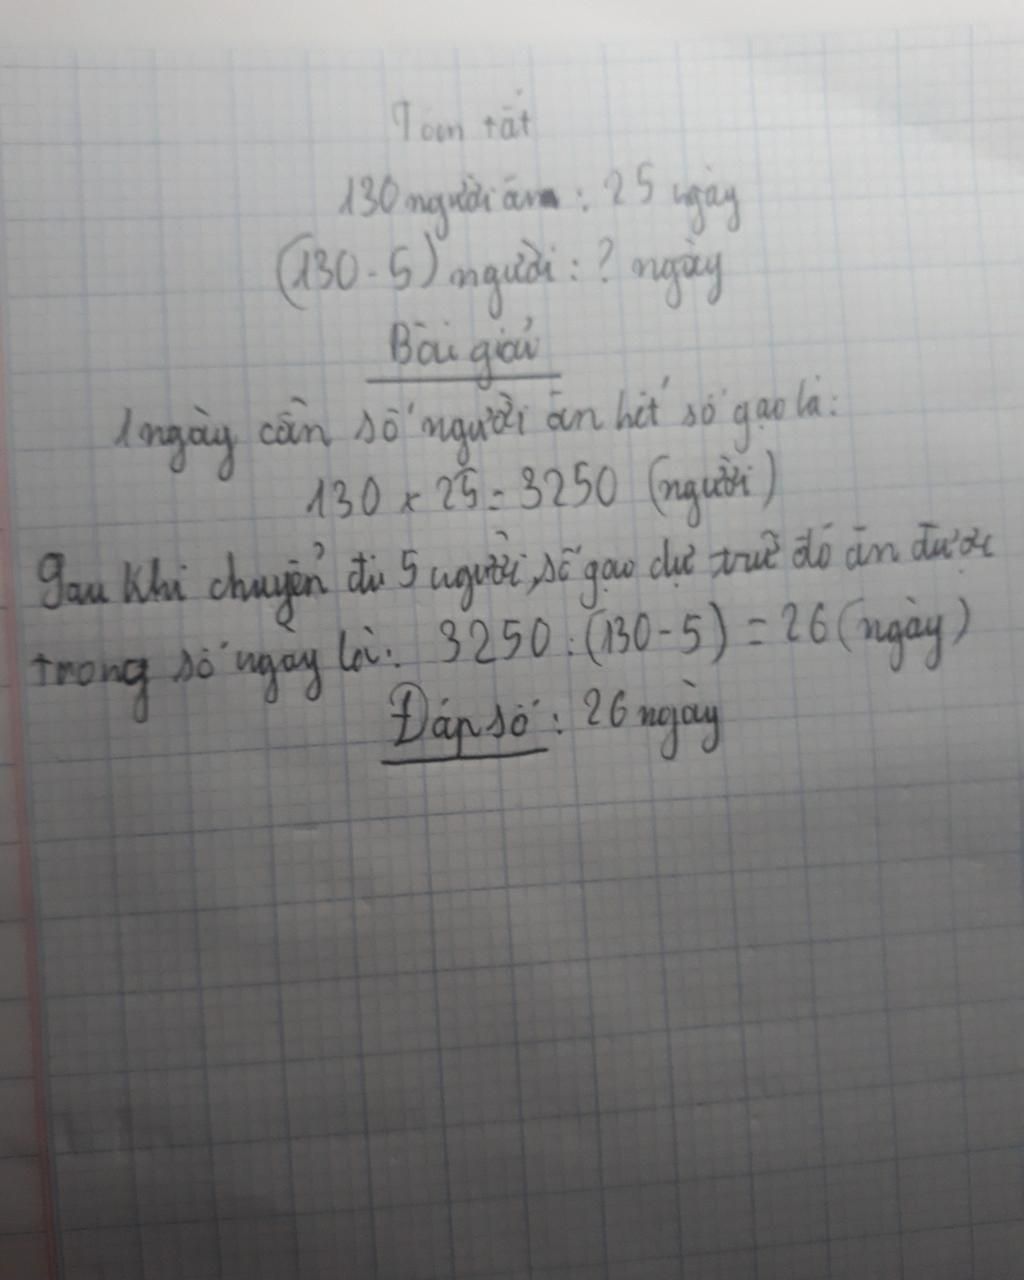 Tóm tắt
130 người ăn : 25 ngày
(130 - 5) người : ? ngày
Bài giải
1 ngày cần số người ăn hết số gạo là:
130 x 25 = 3250 (người)
Sau khi chuyển đi 5 người, số gạo dự trữ đó ăn được
trong số ngày là: 3250 : (130 - 5) = 26 (ngày)
Đáp số : 26 ngày